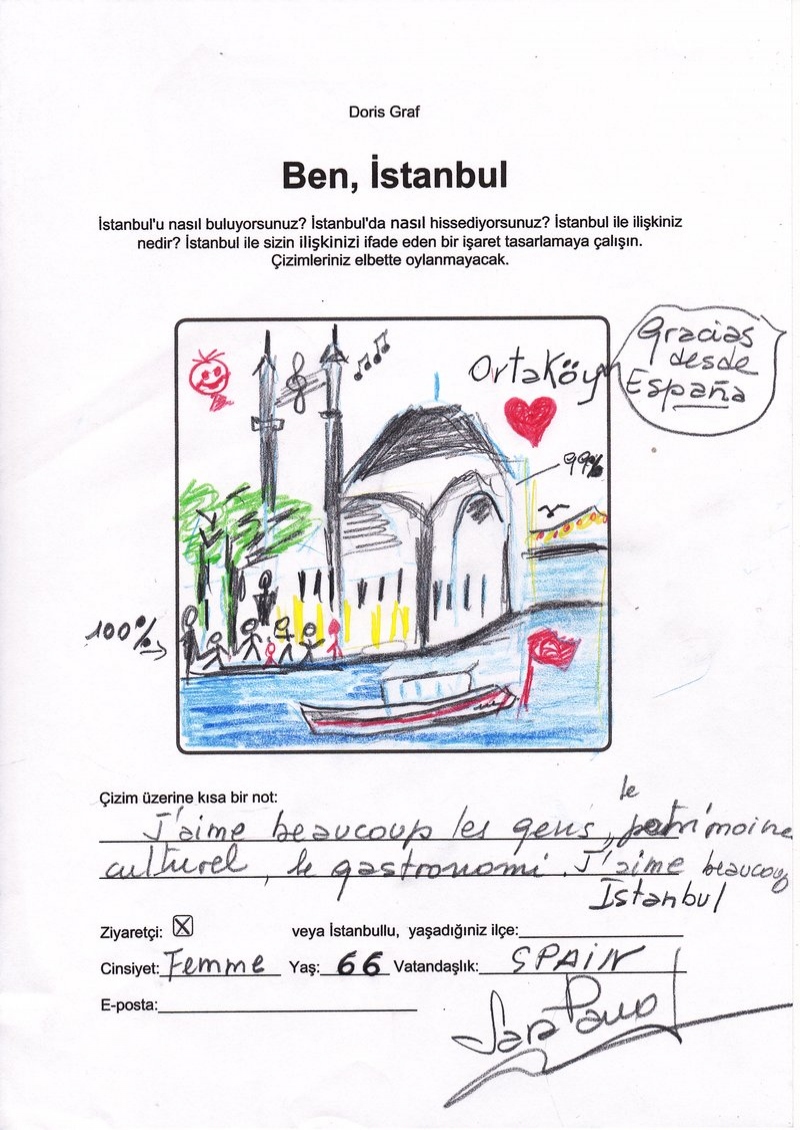 Doris Graf
Ben, İstanbul
İstanbul'u nasıl buluyorsunuz? İstanbul'da nasıl hissediyorsunuz? İstanbul ile ilişkiniz
nedir? İstanbul ile sizin ilişkinizi ifade eden bir işaret tasarlamaya çalışın.
Çizimleriniz elbette oylanmayacak.
Ortaköy
Gracias
desde
España
99%
100%
Çizim üzerine kısa bir not:
le
J'aime beaucoup les gens, patrimoine
culturel, le gastronomi. J'aime beaucoup
Istanbul
Ziyaretçi: X veya İstanbullu, yaşadığınız ilçe:
Cinsiyet: Femme Yaş: 66 Vatandaşlık: SPAIN
E-posta: